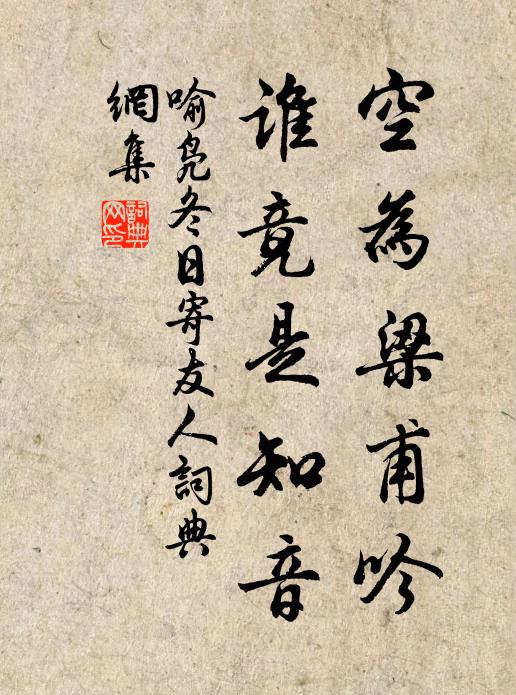 空為梁甫吟
誰竟是知音
喻鳧冬日寄友人詞典
網集
詞典
网印